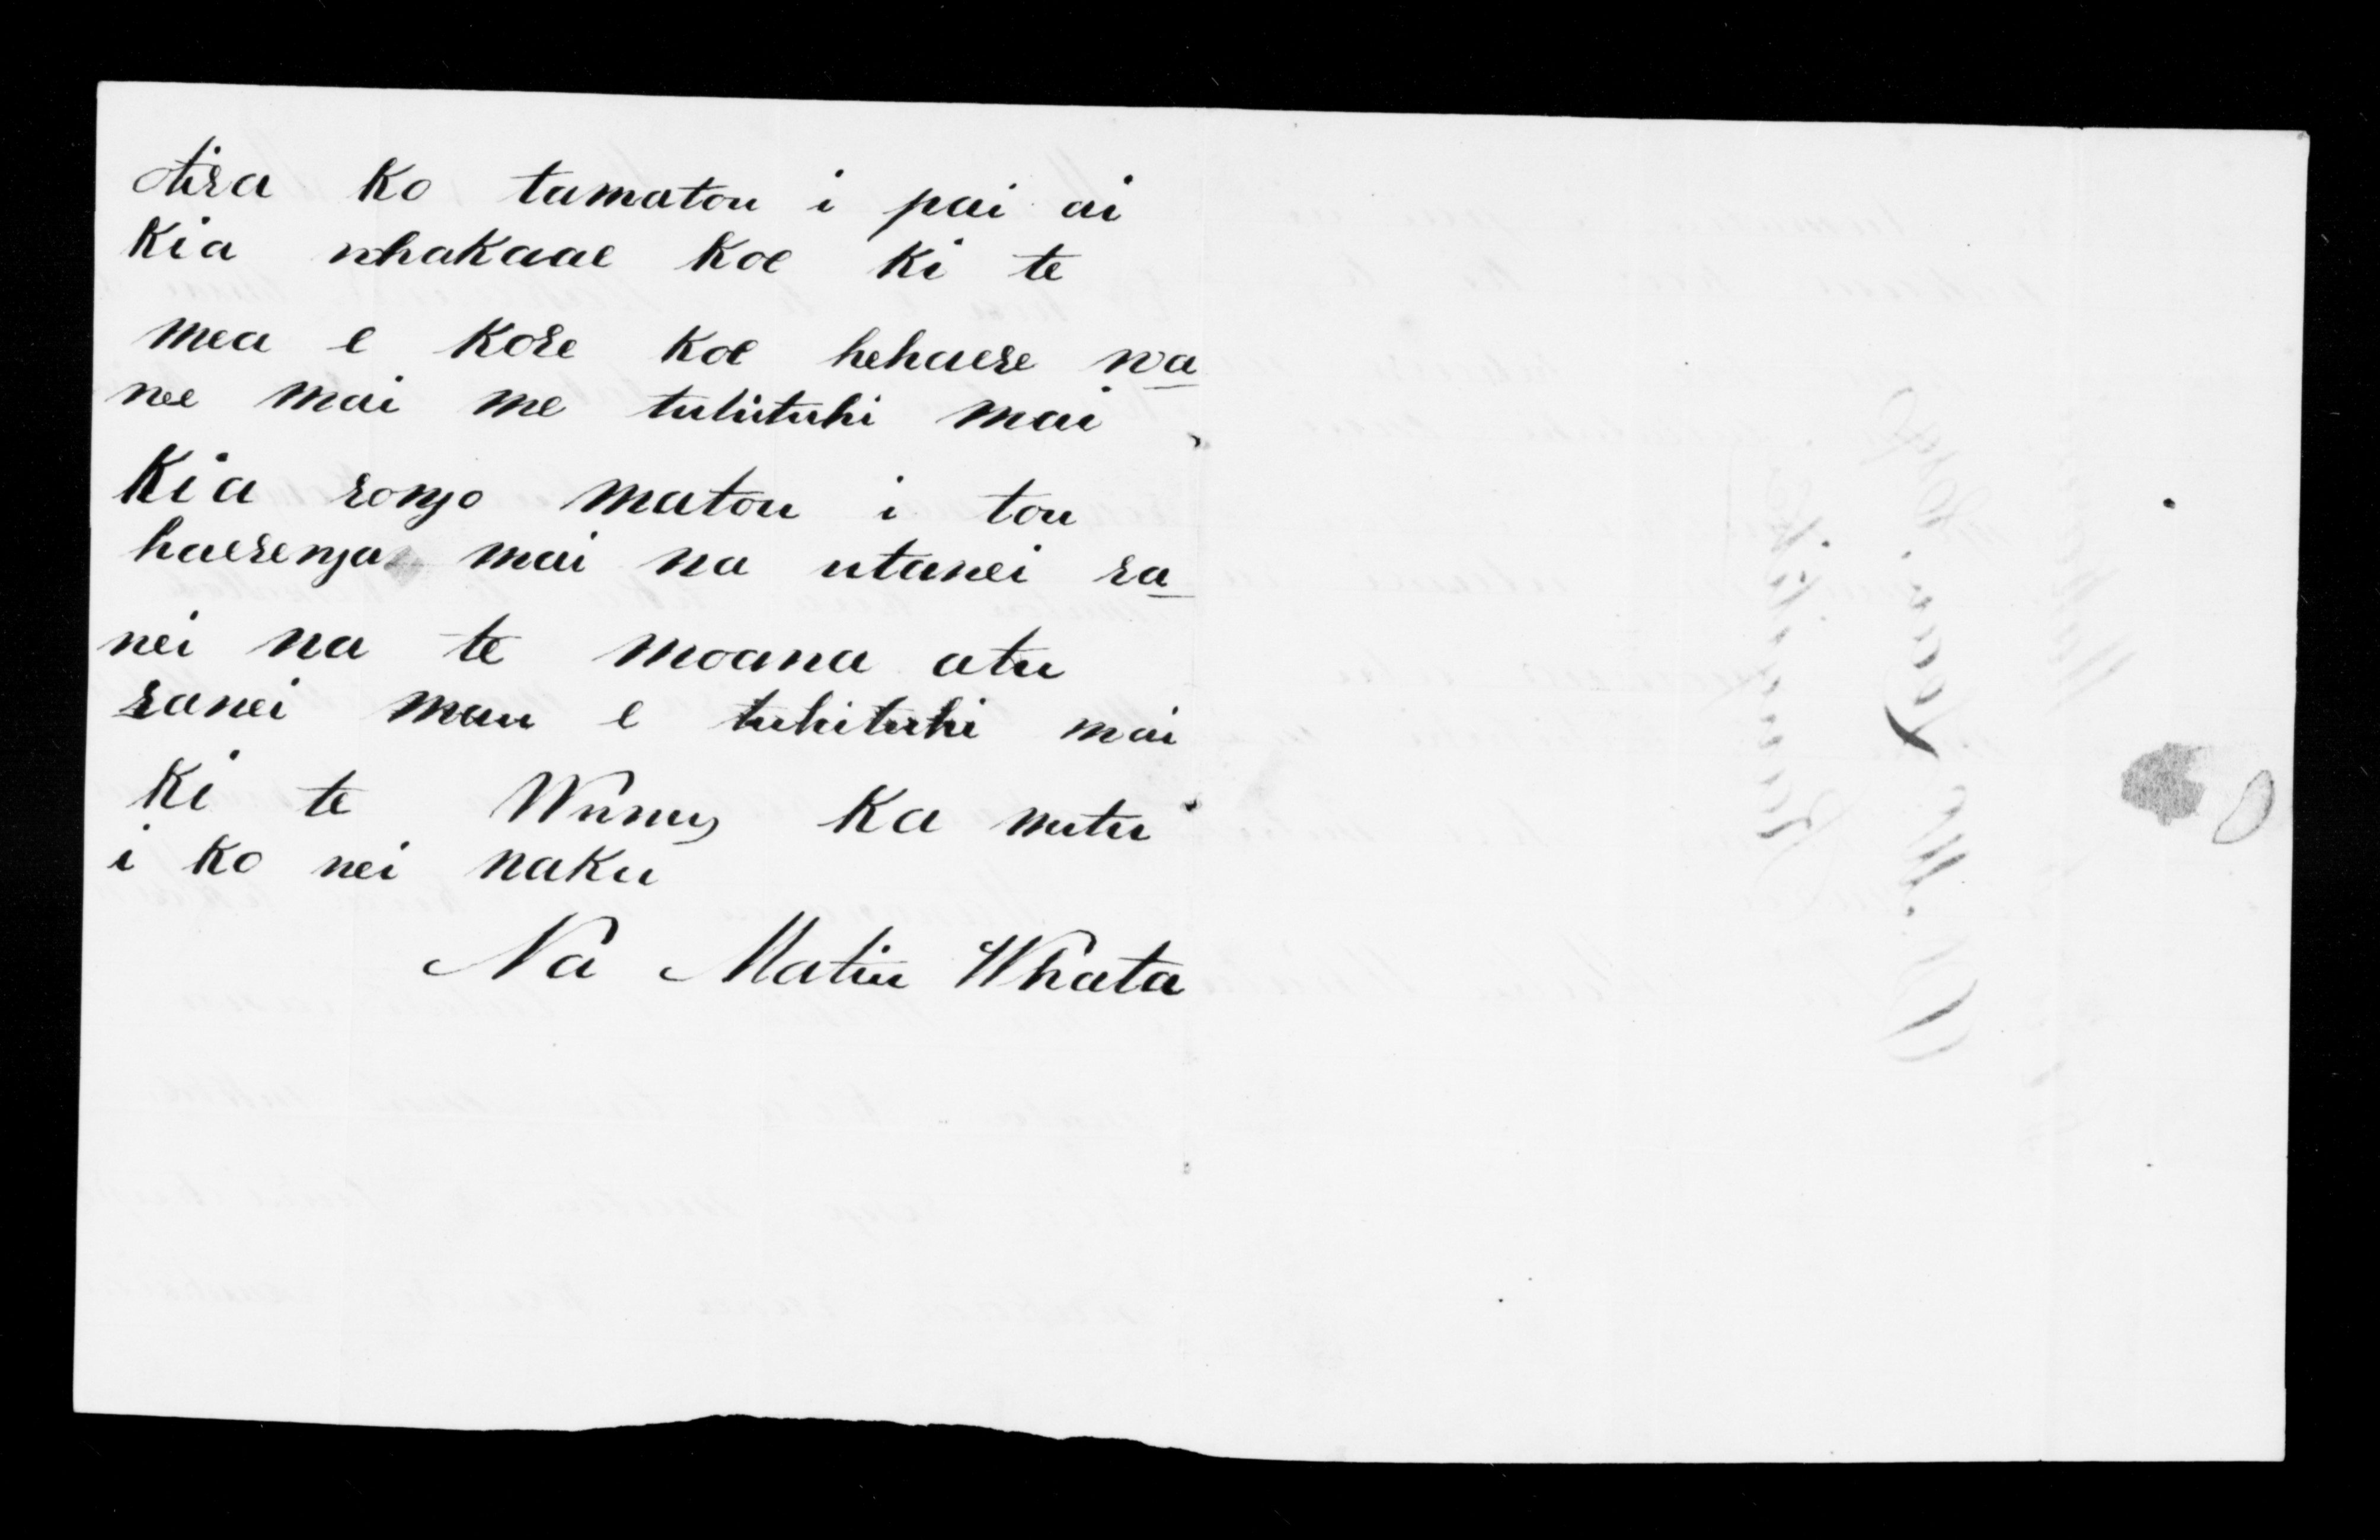 otira ko tamatou i pai ai
Kia whakaae koe ki te
mea e kore koe hehaere wa
nee mai me tuhituhi mai
Kia rongo matou i tou
haerenga mai na utanei ra
nei na te moana atu
ranei mau e tuhituhi mai
Ki te Ka mutu
i ko nei naku
Na Matiu Whata